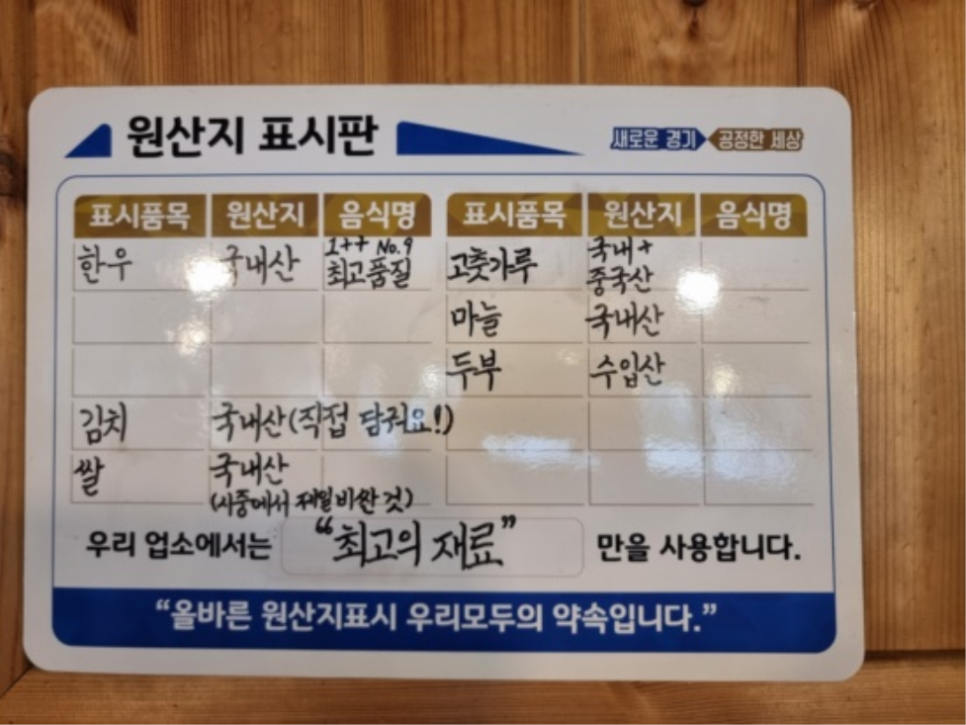 원산지 표시판
새로운 경기 공정한 세상
표시품목 원산지 음식명 표시품목 원산지 음식명
한우 국내산 1++ No.9 최고품질 고춧가루 국내+ 중국산
마늘 국내산
두부 수입산
김치 국내산(직접 담궈요!)
쌀 국내산
(시중에서 제일 비싼 것)
우리 업소에서는 “최고의 재료” 만을 사용합니다.
“올바른 원산지표시 우리모두의 약속입니다.”